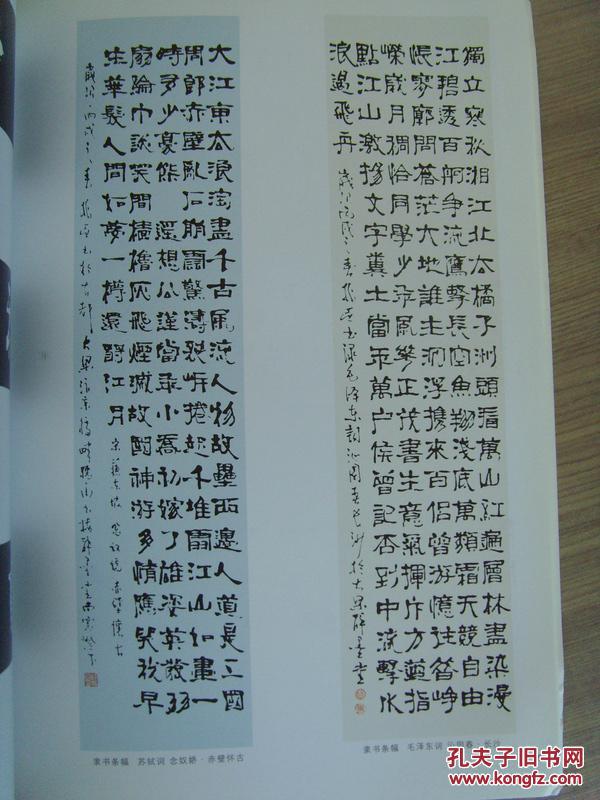 獨立寒秋湘江北去橘子洲頭看萬山紅遍層林盡染漫
江碧透百舸争流鷹擊長空魚翔淺底萬類霜天競自由
悵寥廓問蒼茫大地誰主沉浮携來百侣曾游憶往昔崢
嶸歲月稠恰同學少年風華正茂書生意氣揮斥方遒指
點江山激揚文字糞土當年萬户侯曾記否到中流擊水
浪遏飛舟
歲次丙戌之春 書録毛泽东詞沁園春長沙於大梁醉墨堂
大江東去浪淘盡千古風流人物故壘西邊人道是三國
周郎赤壁亂石崩雲驚濤裂岸捲起千堆雪江山如畫一
時多少豪傑遥想公瑾當年小喬初嫁了雄姿英發羽
扇綸巾談笑間檣櫓灰飛煙滅故國神游多情應笑我早
生華髮人間如夢一樽還酹江月
宋蘇东坡念奴嬌赤壁懷古
歲次丙戌之春 書於古都大梁
隶书条幅 苏轼词 念奴娇·赤壁怀古
隶书条幅 毛泽东词 沁园春·长沙
孔夫子旧书网
www.kongfz.com